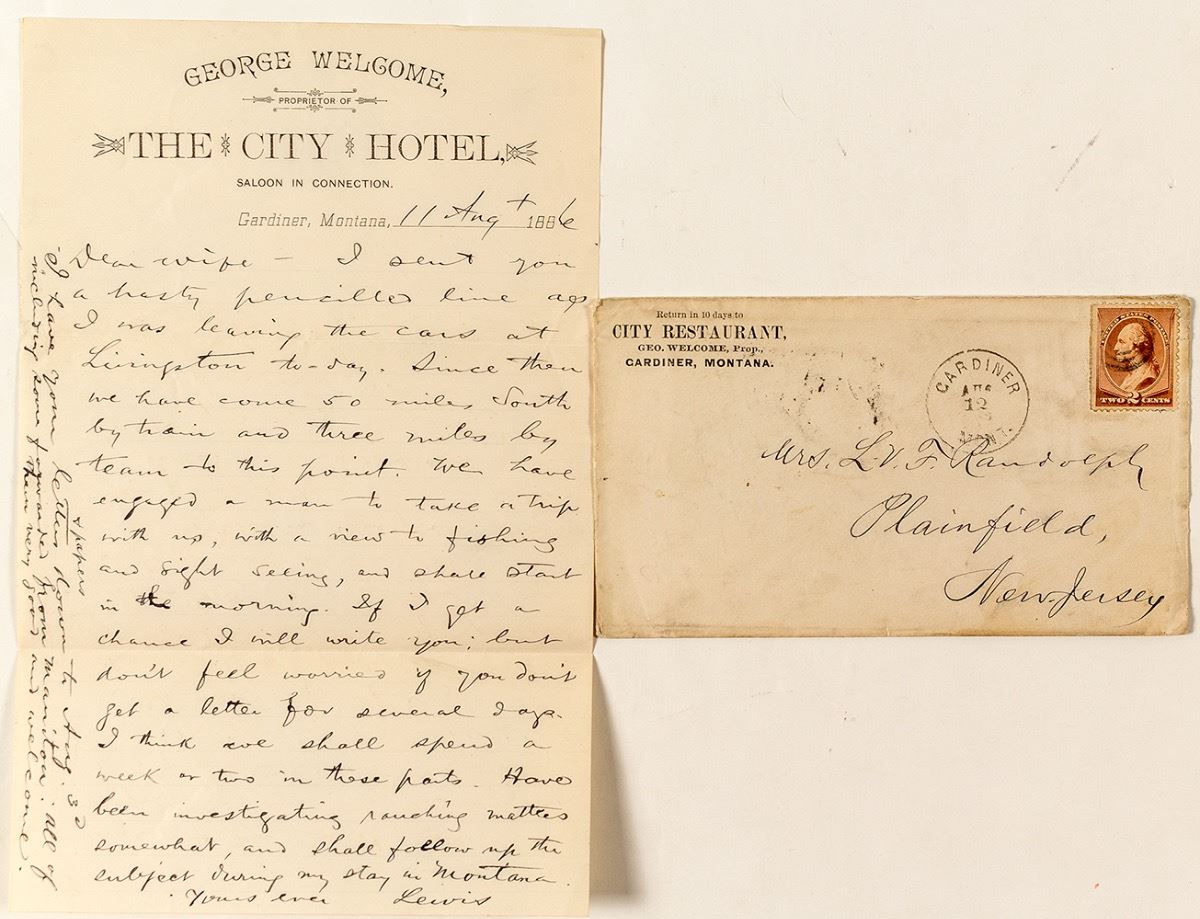 GEORGE WELCOME,
PROPRIETOR OF
THE CITY HOTEL,
SALOON IN CONNECTION.
Gardiner, Montana, 11 Augt 1886
Dear wife - I sent you
a hasty pencilled line as
I was leaving the cars at
Livingston to-day. Since then
we have come 50 miles South
by train and three miles by
team to this point. We have
engaged a man to take a trip
with us, with a view to fishing
and sight seeing, and shall start
in the morning. If I get a
chance I will write you; but
don't feel worried if you don't
get a letter for several days.
I think we shall spend a
week or two in these parts. Have
been investigating ranching matters
somewhat, and shall follow up the
subject during my stay in Montana.
Yours ever Lewis
I have your letters & papers down to Aug. 3d
including some forwarded from Manitou: all of
them very good and welcome.
Return in 10 days to
CITY RESTAURANT,
GEO. WELCOME, Prop.,
GARDINER, MONTANA.
GARDINER
AUG
12
MONT.
UNITED STATES POSTAGE
TWO 2 CENTS
Mrs. L. V. F. Randolph
Plainfield,
New Jersey